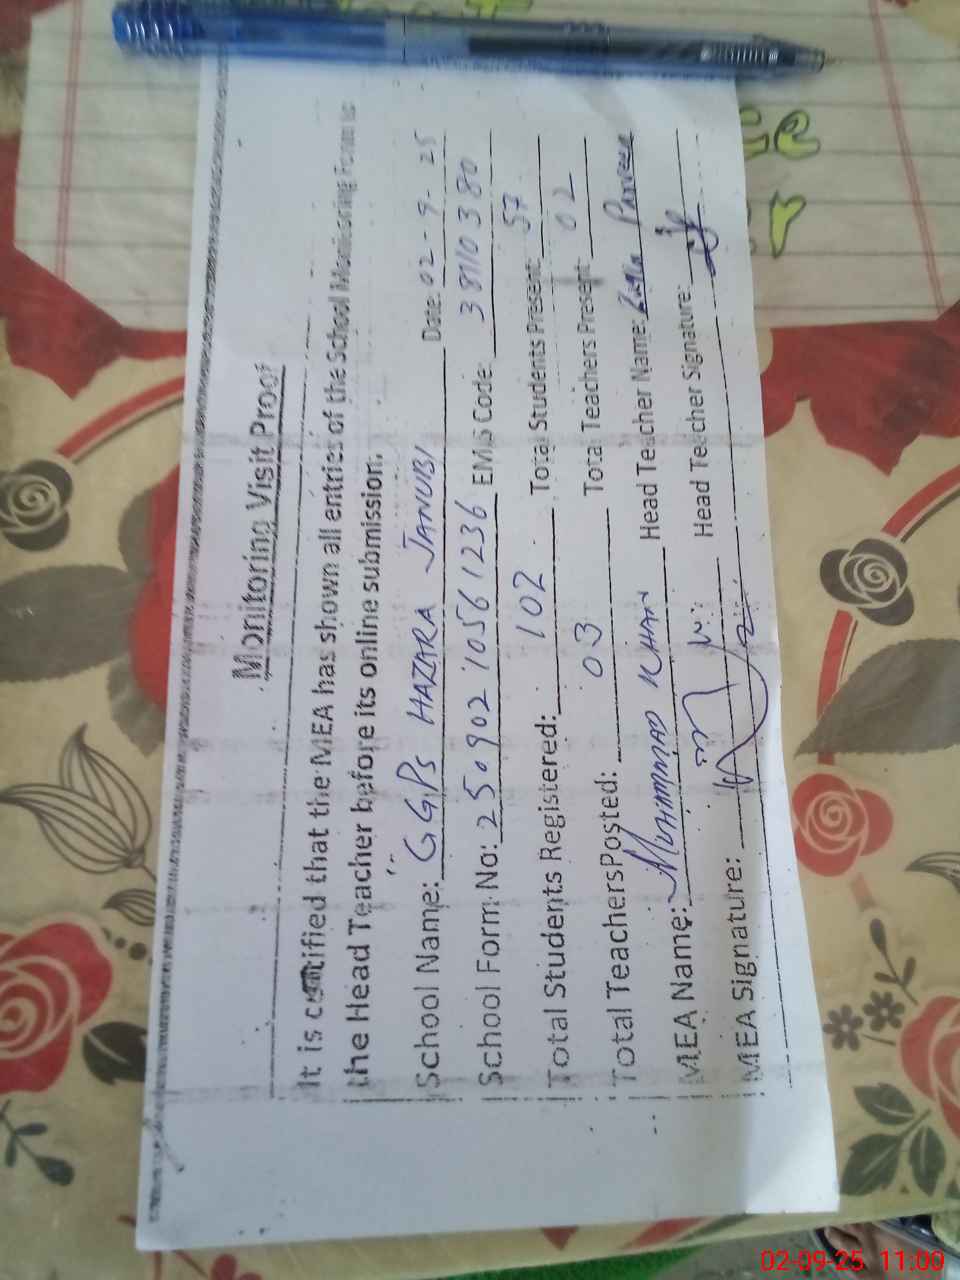 Monitoring Visit Proof
It is certified that the MEA has shown all entries of the School Monitoring Form to
the Head Teacher before its online submission.
School Name: GGPS HAZARA JANUBI Date: 02-9-25
School Form No: 2509021056 1236 EMIS Code: 38110380
Total Students Registered: 102 Total Students Present: 57
Total Teachers Posted: 03 Total Teachers Present: 02
MEA Name: MUHAMMAD KHAN Head Teacher Name: Parveen
MEA Signature: Head Teacher Signature:
02-09-25 11:00